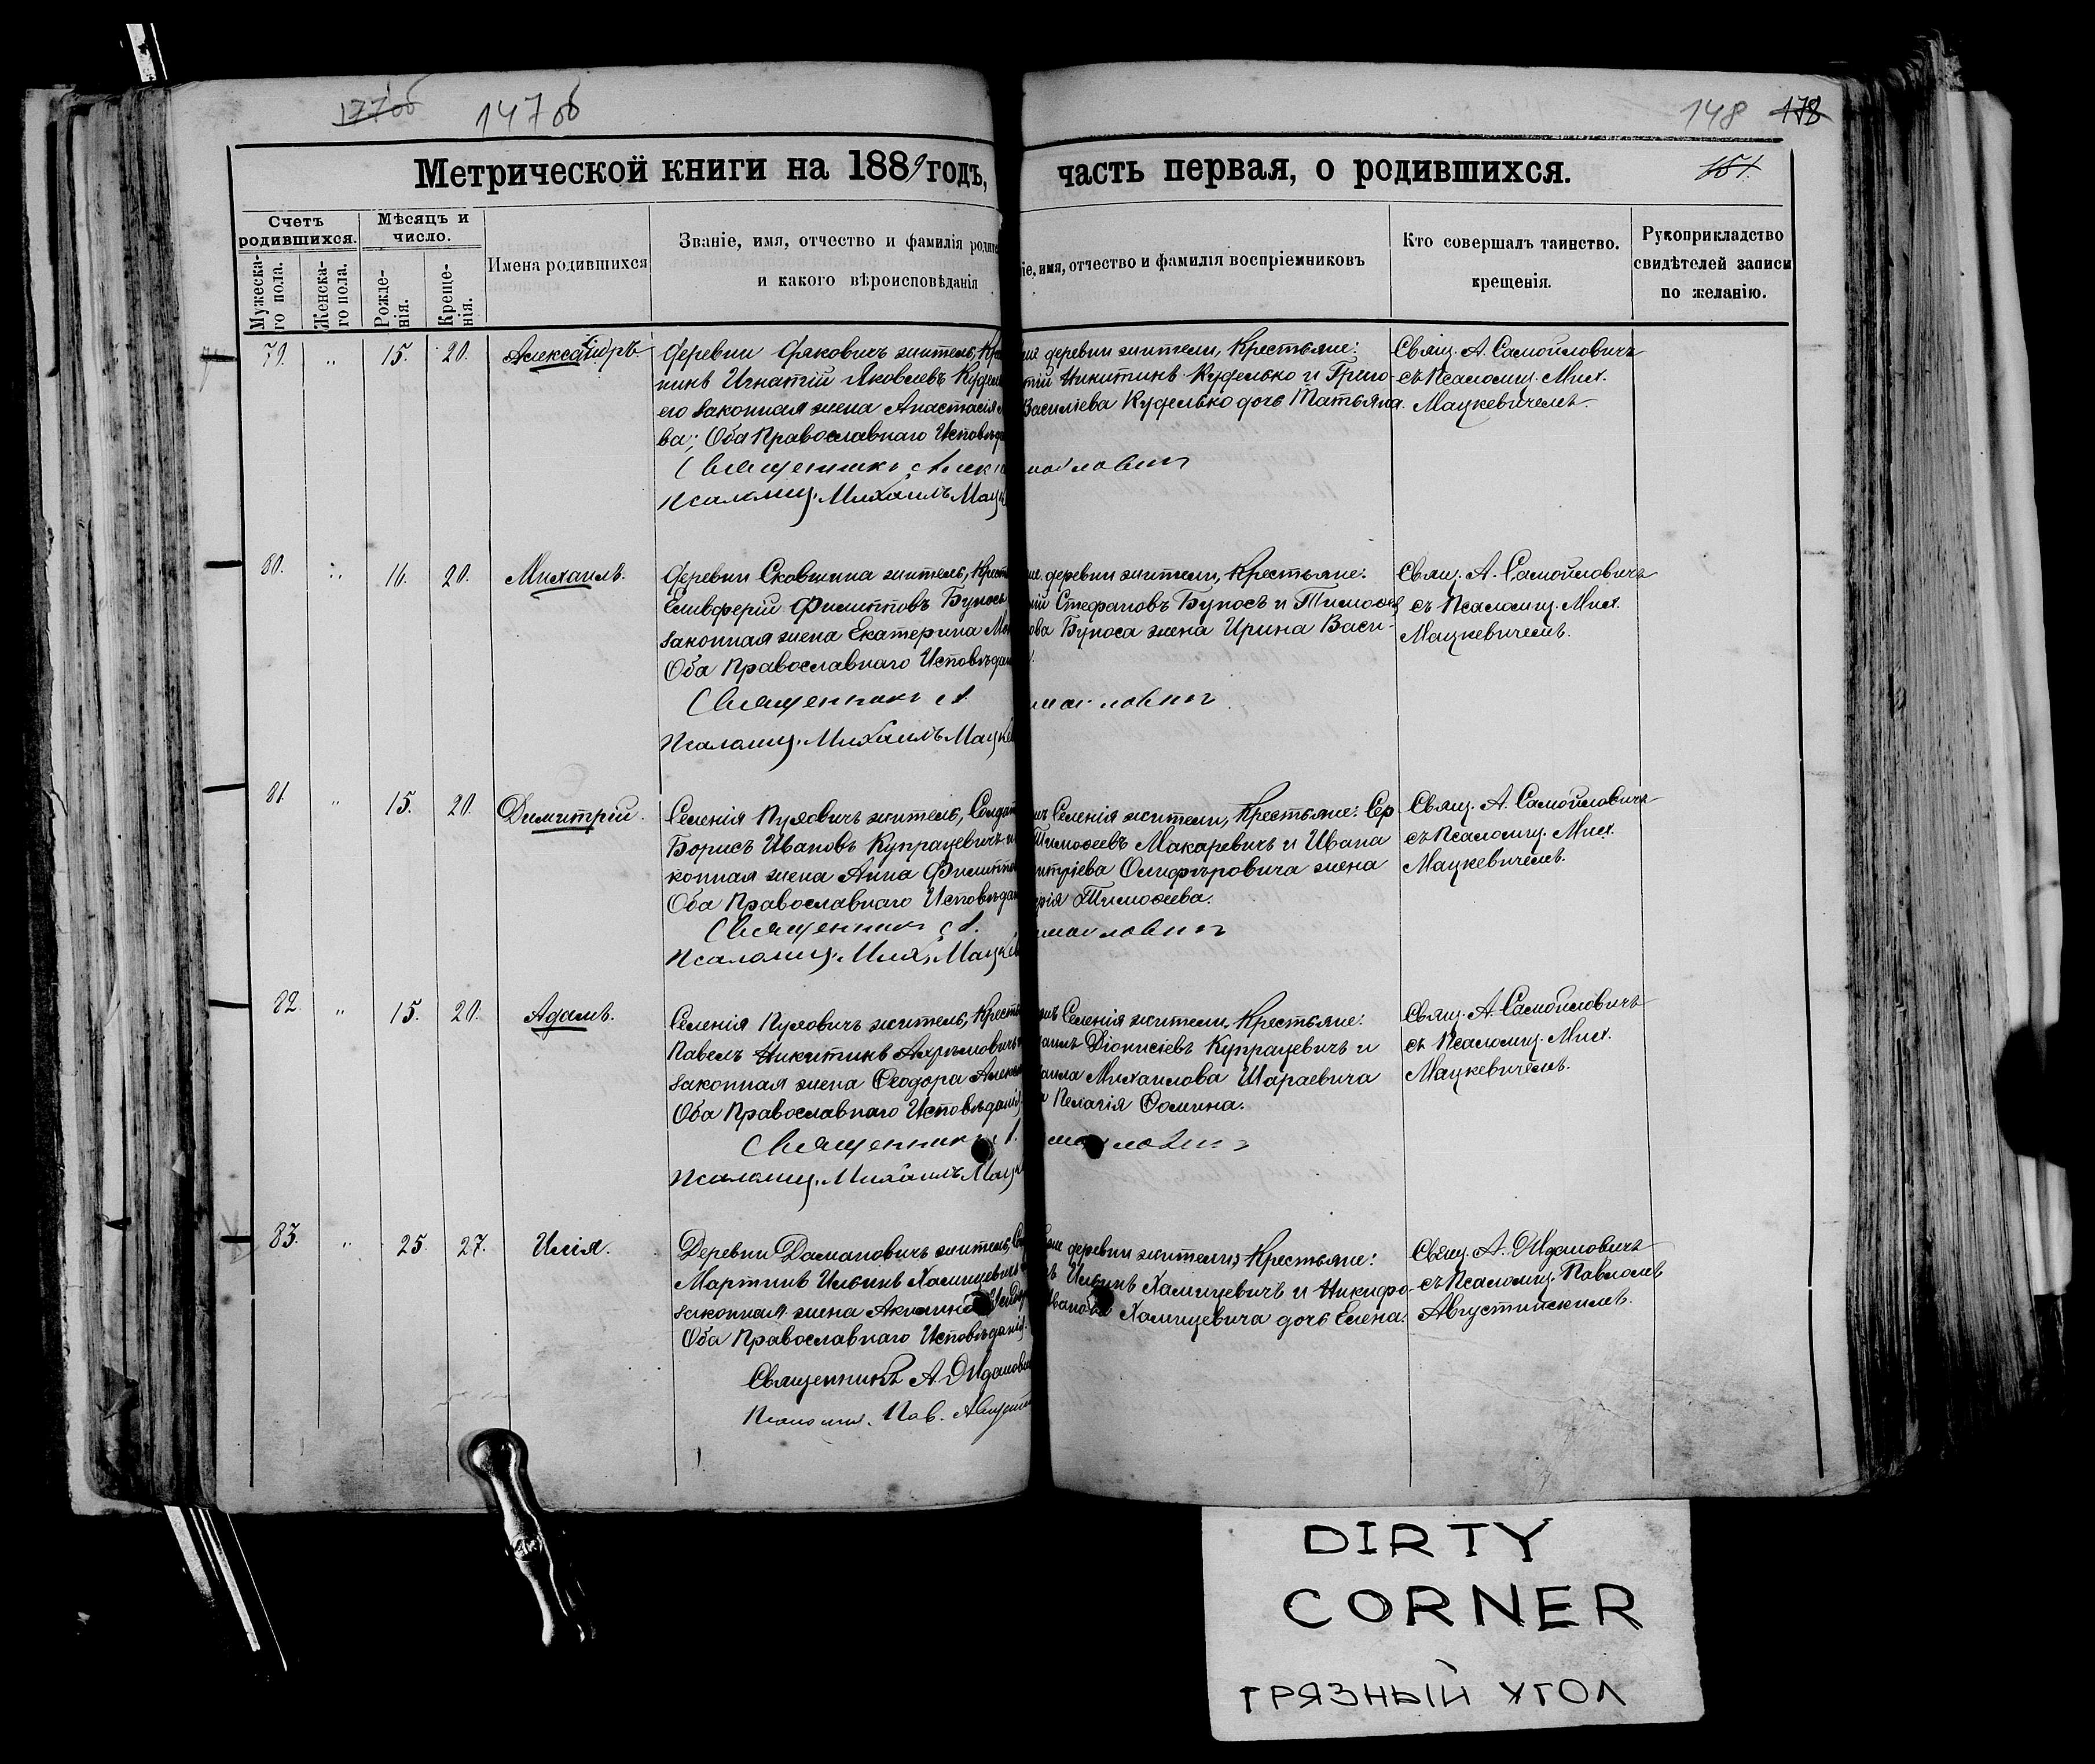 177об 147об
148 178
Метрической книги на 1889 годъ, часть первая, о родившихся.
151.
Счетъ родившихся.
Мѣсяцъ и число.
Мужеска-го пола.
Женска-го пола.
Рожде-нія.
Креще-нія.
Имена родившихся
Званіе, имя, отчество и фамилія родите
и какого вѣроисповѣданія
іе, имя, отчество и фамилія воспріемниковъ
Кто совершалъ таинство.
крещенія.
Рукоприкладство
свидѣтелей записи
по желанію.
79. „ 15. 20. Александръ
Деревни житель, Кре
нинъ Игнатій Яковлевъ Кудел
его законная жена Анастасія
ва; Оба Православнаго Исповѣда
Священникъ
Псаломщ. Михаилъ Мацк
же деревни жители, Крестьяне:
тій Никитинъ Куделько и Григо-
Василіева Куделько дочь Татьяна.
мойловичъ
Свящ. А. Самойловичъ
съ Псаломщ. Мих.
Мацкевичемъ.
80. „ 16. 20. Михаилъ.
Деревни Сковшина житель, Крест
Елевферій Филипповъ Буносъ
законная жена Екатерина
Оба Православнаго Исповѣдан
Священникъ А.
Псаломщ. Михаилъ Мацке
же деревни жители, Крестьяне:
ній Стефановъ Буносъ и Тимоѳея
ова Буноса жена Ирина Васи-
мойловичъ
Свящ. А. Самойловичъ
съ Псаломщ. Мих.
Мацкевичемъ.
81. „ 15. 20. Димитрій.
Селенія Пуховичъ житель, Солдат
Борисъ Ивановъ Купрацевичъ и
конная жена Анна Филиппо
Оба Православнаго Исповѣдан
Священникъ А.
Псаломщ. Мих. Мацке
чъ Селенія жители, Крестьяне: Сер
Тимоѳеевъ Макаревичъ и Ивана
митріева Олифѣровича жена
рія Тимоѳеева.
мойловичъ
Свящ. А. Самойловичъ
съ Псаломщ. Мих.
Мацкевичемъ.
82. „ 15. 20. Адамъ.
Селенія Пуховичъ житель, Кресть
Павелъ Никитинъ Ахрѣмовичъ
законная жена Ѳеодора Алек
Оба Православнаго Исповѣданія.
Священникъ А.
Псаломщ. Михаилъ Мацк
чъ Селенія жители, Крестьяне:
Діонисіевъ Купрацевичъ и
аила Михаилова Шараевича
а Пелагія Ѳомина.
мойловичъ
Свящ. А. Самойловичъ
съ Псаломщ. Мих.
Мацкевичемъ.
83. „ 25. 27. Илія.
Деревни Дамановичъ житель,
Мартинъ Ильинъ Халицевичъ
законная жена Акилина
Оба Православнаго Исповѣданія.
Священникъ А.
Псаломщ. Пав. Августи
же деревни жители, Крестьяне:
ъ Ильинъ Халицевичъ и Никифо-
Иванова Халицевича дочь Елена.
Свящ. А.
съ Псаломщ. Павломъ
Августинскимъ.
DIRTY
CORNER
ГРЯЗНЫЙ УГОЛ